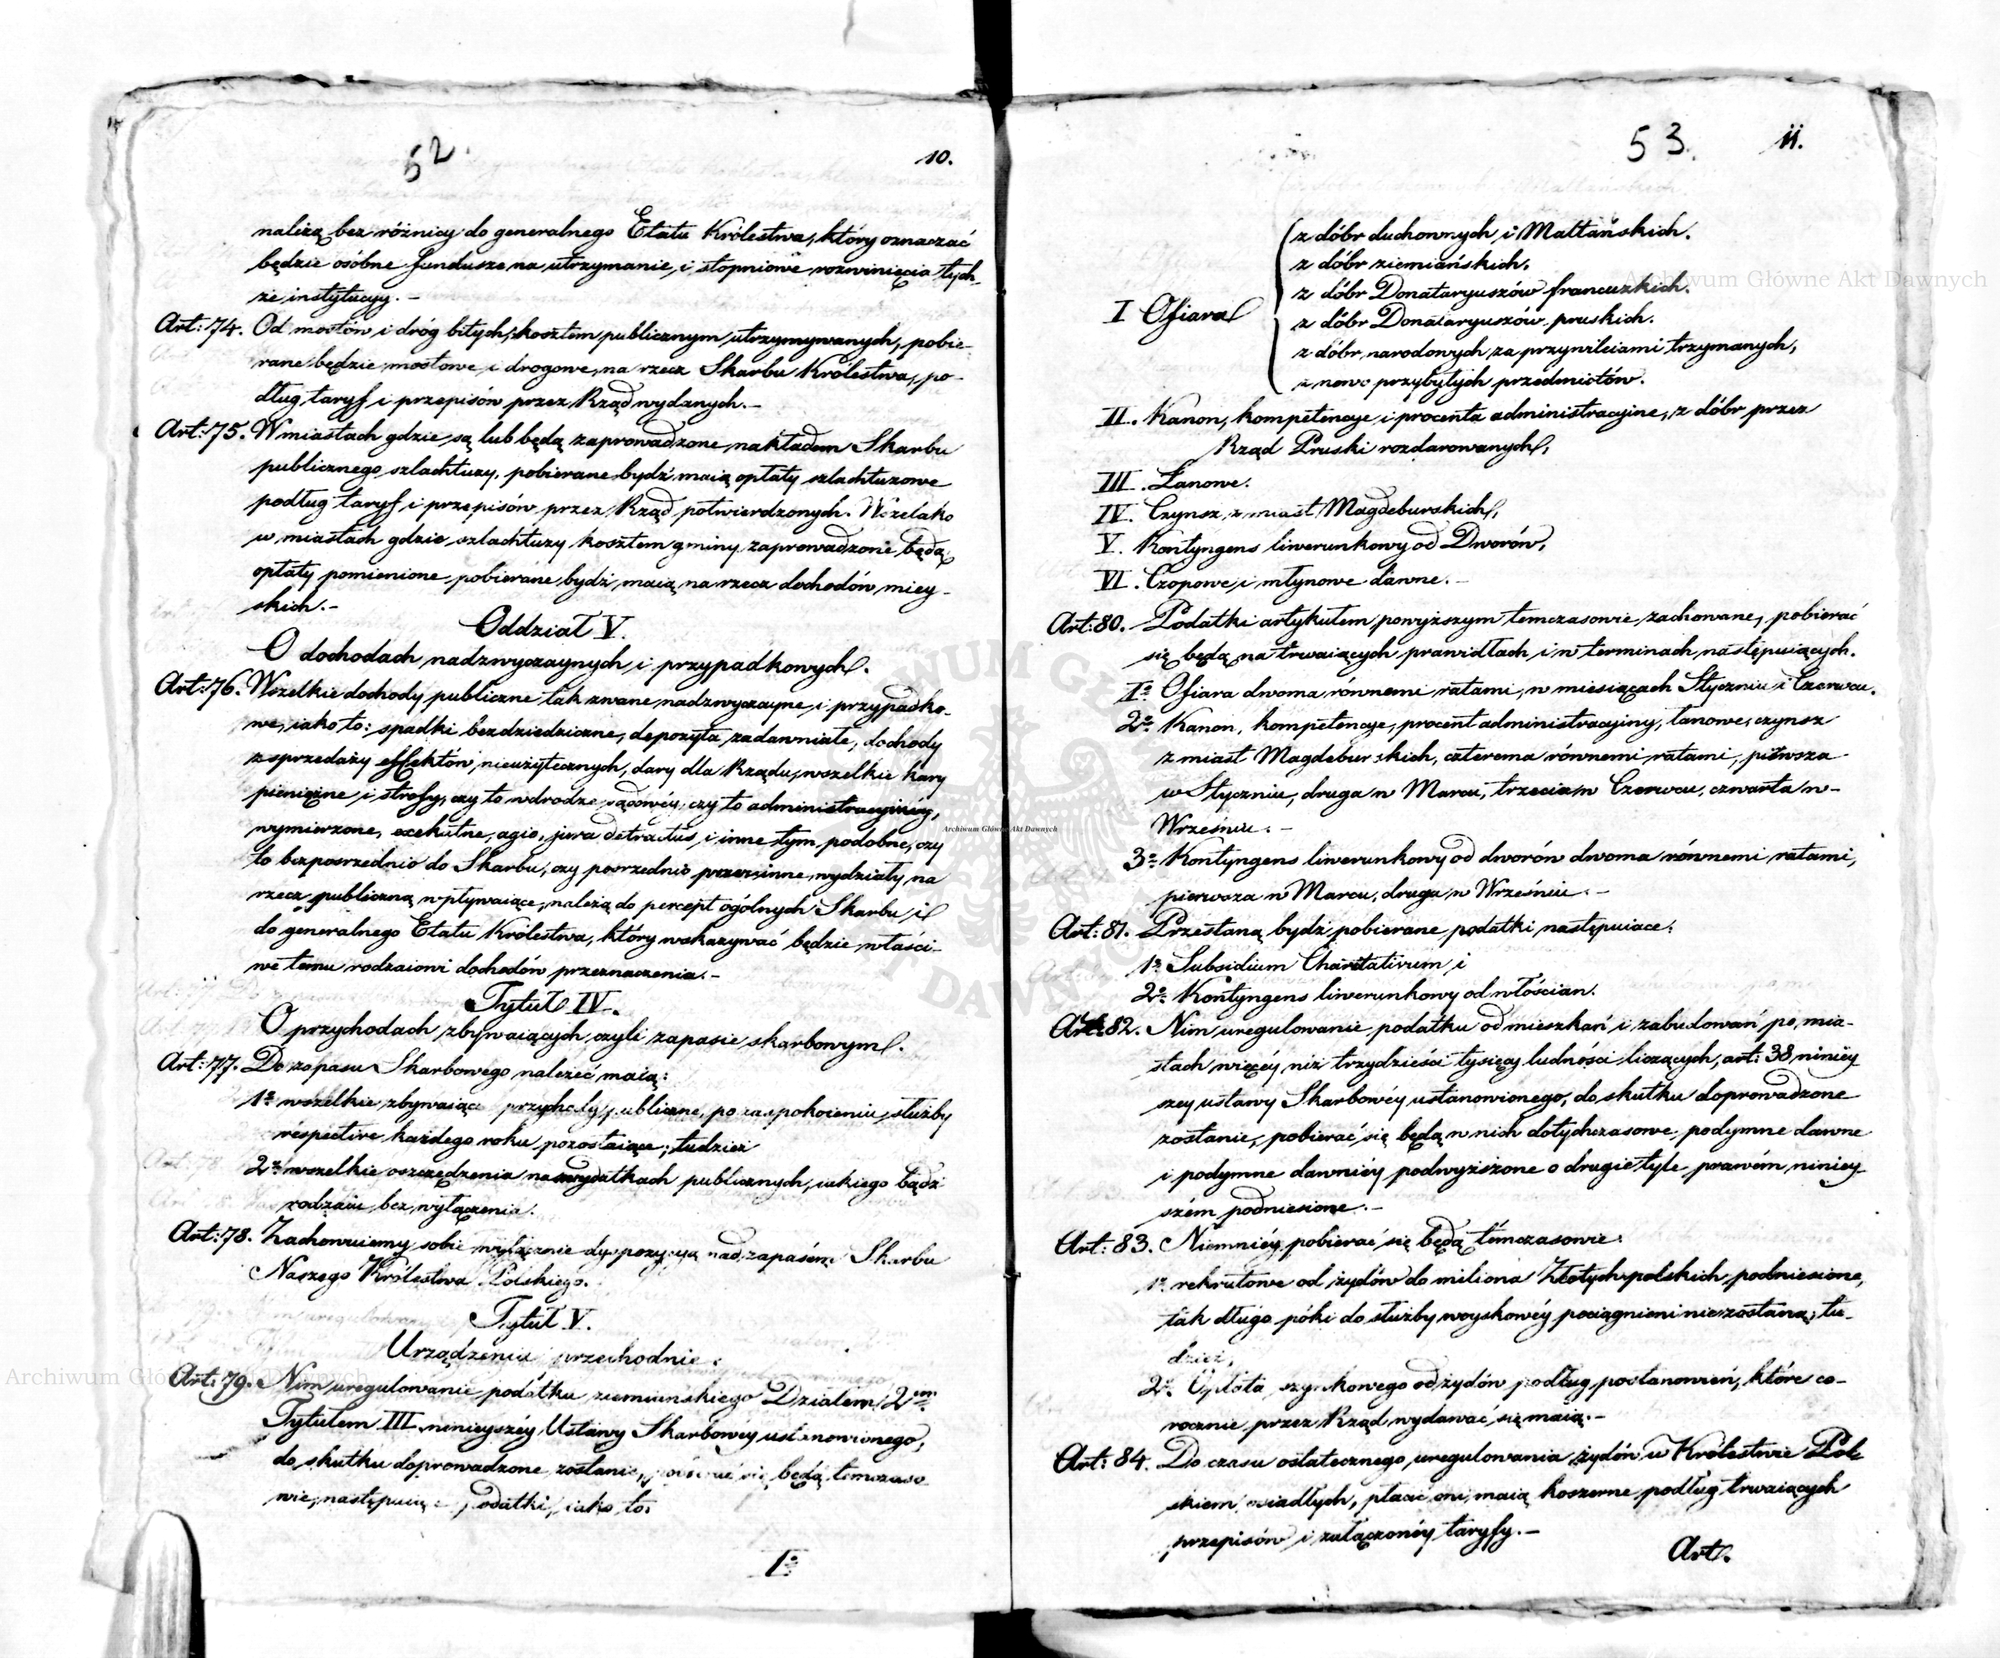 52.
10.
należą bez różnicy do generalnego Etatu Królestwa, który oznaczać
będzie osóbne fundusze na utrzymanie i stopniowe rozwinięcia tych-
że instytucyy. —
Art: 74. Od mostów i dróg bitych, kosztem publicznym utrzymywanych, pobie-
rane będzie mostowe i drogowe, na rzecz Skarbu Królestwa, po-
dług taryf i przepisów przez Rząd wydanych. —
Art: 75. W miastach gdzie są lub będą zaprowadzone nakładem Skarbu
publicznego szlachtuzy, pobierane bydź maią opłaty szlachtuzowe
podług taryf i przepisów przez Rząd potwierdzonych. Wszelako
w miastach gdzie szlachtuzy kosztem gminy zaprowadzone będą
opłaty pomienione pobierane bydź maią na rzecz dochodów miey-
skich. —
Oddział V.
O dochodach nadzwyczaynych i przypadkowych.
Art: 76. Wszelkie dochody publiczne tak zwane nadzwyczayne i przypadko-
we, iako to: spadki bezdziedziczne, depozyta zadawniałe, dochody
z sprzedaży effektów nieużytecznych, dary dla Rządu, wszelkie kary
pieniężne i strofy, czy to w drodze sądowéy, czy to administracyinéy,
wymierzone, exekutne, agio, jura detractus, i inne tym podobne, czy
to bezposrzednio do Skarbu, czy posrzednio przez inne wydziały na
rzecz publiczną wpływaiące, należą do percept ogólnych Skarbu i
do generalnego Etatu Królestwa, który wskazywać będzie właści-
we temu rodzaiowi dochodów przeznaczenia. —
Tytuł IV.
O przychodach zbywaiących czyli zapasie skarbowym.
Art: 77. Do zapasu Skarbowego należeć maią:
1º wszelkie zbywaiące przychody publiczne, po zaspokoieniu służby
respective każdego roku pozostaiące; tudzież
2º wszelkie oszczędzenia na wydatkach publicznych, iakiego bądź
rodzaiu, bez wyłączenia.
Art: 78. Zachowuiemy sobie wyłącznie dyspozycyą nad zapasém Skarbu
Naszego Królestwa Polskiego.
Tytuł V.
Urządzenia przechodnie.
Art: 79. Nim uregulowanie podatku ziemianskiego Działem 2em
Tytułem III ninieyszéy Ustawy Skarbowéy ustanowionego,
do skutku doprowadzone zostanie, pobierać się będą temczaso
wie, następuiące podatki, iako to:
1º
53.
11.
z dóbr duchownych i Maltańskich.
z dóbr ziemiańskich.
z dóbr Donataryuszów francuzkich.
I Ofiara
z dóbr Donataryuszów pruskich.
z dóbr narodowych za przywileiami trzymanych,
z nowo przybyłych przedmiotów.
II. Kanon, kompetencye i procenta administracyine, z dóbr przez
Rząd Pruski rozdarowanych,
III. Łanowe.
IV. Czynsz z miast Magdeburskich,
V. Kontyngens liwerunkowy od Dworów,
VI. Czopowe i młynowe dawne. —
Art: 80. Podatki artykułem powyższym temczasowie zachowane, pobierać
się będą na trwaiących prawidłach i w terminach następuiących.
1º Ofiara dwoma równemi ratami, w miesiącach Styczniu i Czerwcu.
2º Kanon, kompetencye, procent administracyiny, łanowe, czynsz
z miast Magdeburskich, czterema równemi ratami, pierwsza
w Styczniu, druga w Marcu, trzecia w Czerwcu, czwarta w
Wrześniu. —
3º Kontyngens liwerunkowy od dworów dwoma równemi ratami,
pierwsza w Marcu, druga w Wrześniu. —
Art: 81. Przestaną bydź pobierane podatki następuiace:
1º Subsidium Charitativum i
2º Kontyngens liwerunkowy od włościan.
Art: 82. Nim uregulowanie podatku od mieszkań i zabudowań po mia-
stach więcéy niż trzydzieści tysięcy ludności liczących, art: 38 niniéy
szey ustawy Skarbowéy ustanowionego, do skutku doprowadzone
zostanie, pobierać się będą w nich dotychczasowe podymne dawne
i podymne dawniéy podwyższone o drugie tyle prawem niniey
szém podniesione. —
Art: 83. Niemniéy pobierać się będą témczasowie:
1º rekrutowe od żydów do miliona Złotych polskich podniesione,
tak długo póki do służby woyskowéy pociągnieni nie zostaną; tu-
dzież,
2º Opłata szynkowego od żydów podług postanowień, które co-
rocznie przez Rząd wydawać się maią. —
Art: 84. Do czasu ostatecznego uregulowania żydów w Królestwie Pol-
skiem osiadłych, płacić oni maią koszerne podług trwaiących
przepisów i załączonéy taryfy. —
Art.
Archiwum Główne Akt Dawnych
Archiwum Główne Akt Dawnych
Archiwum Główne Akt Dawnych